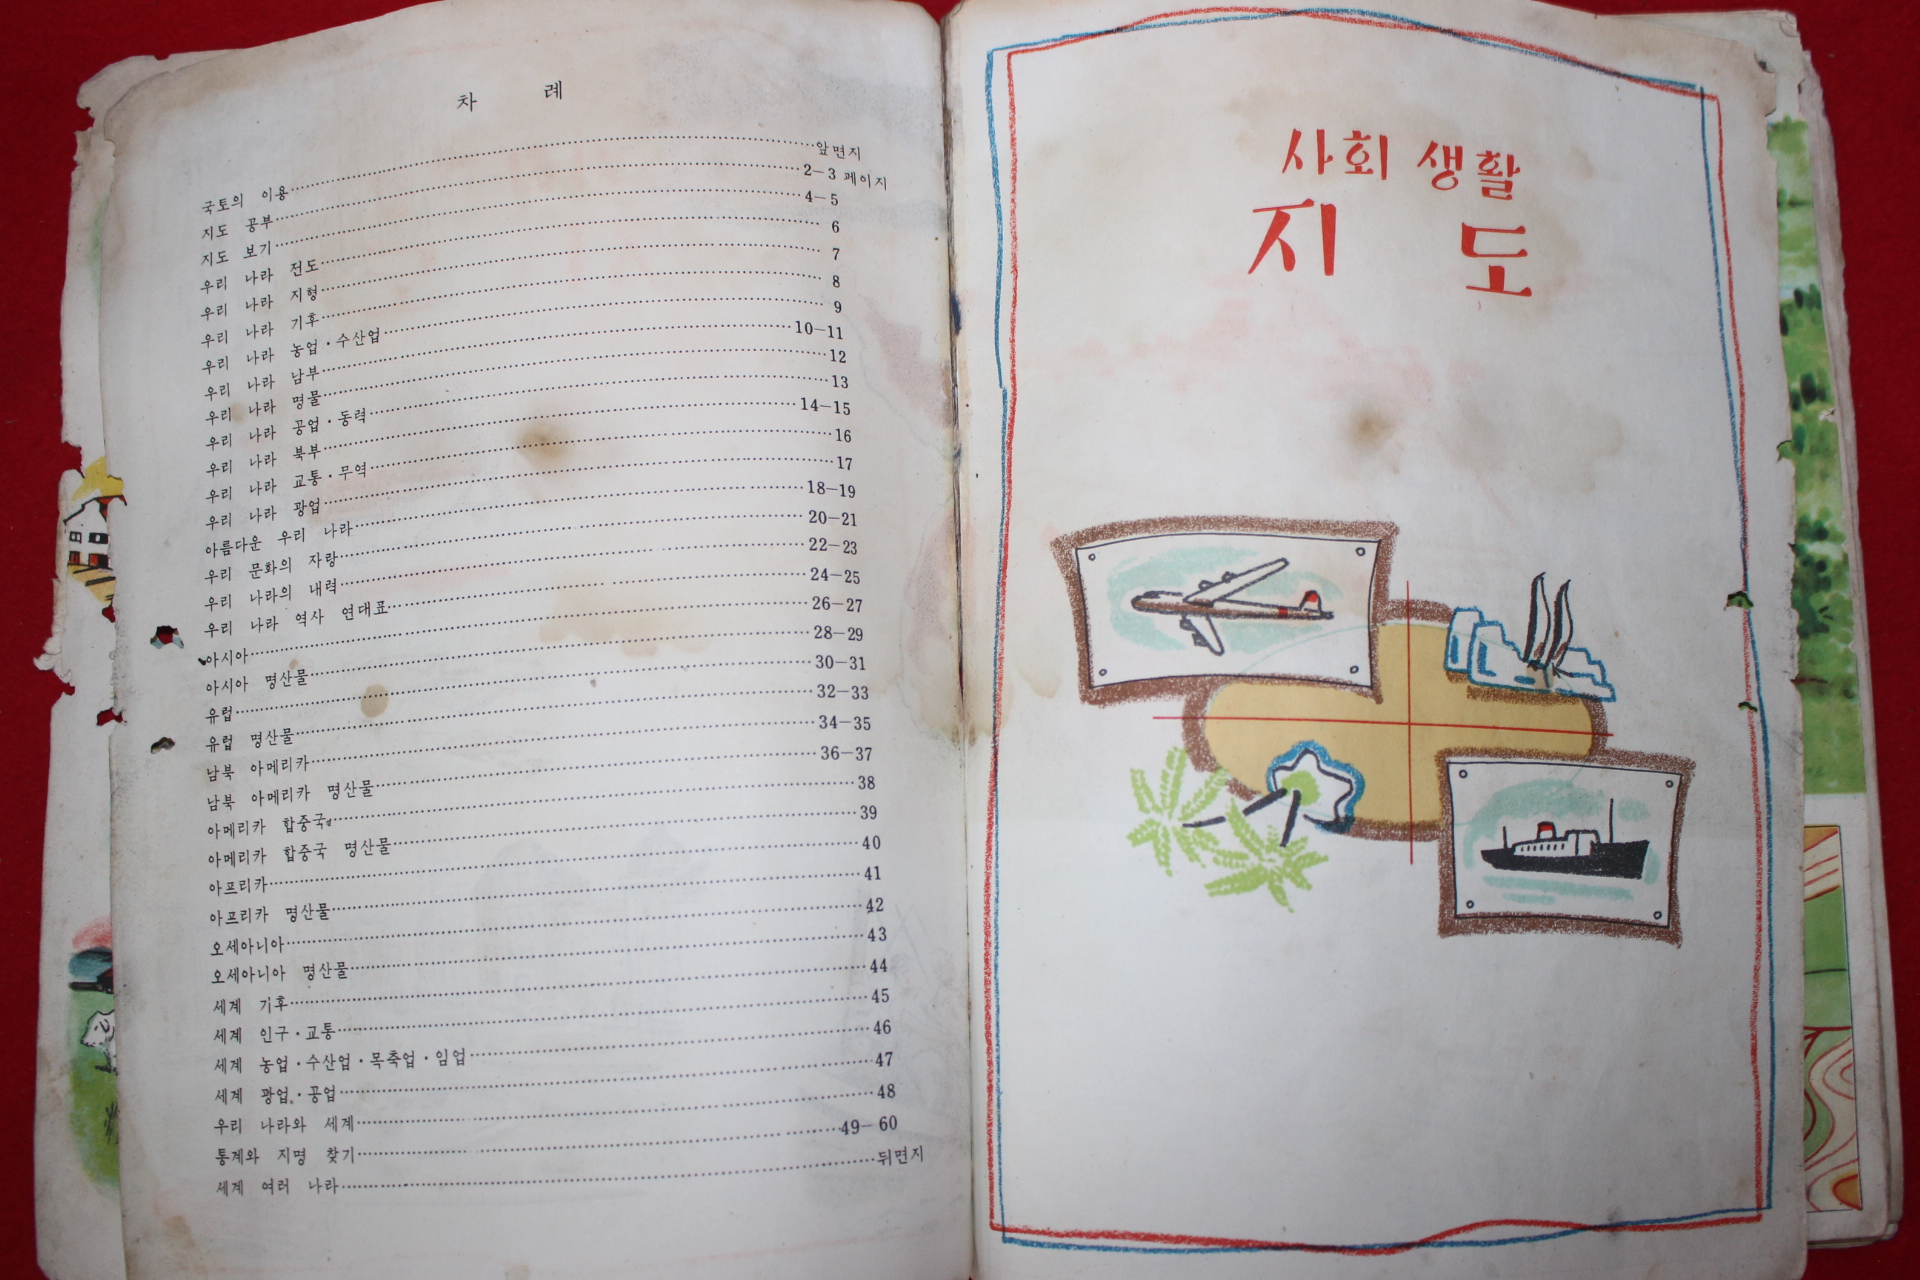 차 례
국토의 이용……앞면지
지도 공부……2—3 페이지
지도 보기……4—5
우리 나라 전도……6
우리 나라 지형……7
우리 나라 기후……8
우리 나라 농업·수산업……9
우리 나라 남부……10—11
우리 나라 명물……12
우리 나라 공업·동력……13
우리 나라 북부……14—15
우리 나라 교통·무역……16
우리 나라 광업……17
아름다운 우리 나라……18—19
우리 문화의 자랑……20—21
우리 나라의 내력……22—23
우리 나라 역사 연대표……24—25
아시아……26—27
아시아 명산물……28—29
유럽……30—31
유럽 명산물……32—33
남북 아메리카……34—35
남북 아메리카 명산물……36—37
아메리카 합중국……38
아메리카 합중국 명산물……39
아프리카……40
아프리카 명산물……41
오세아니아……42
오세아니아 명산물……43
세계 기후……44
세계 인구·교통……45
세계 농업·수산업·목축업·임업……46
세계 광업·공업……47
우리 나라와 세계……48
통계와 지명 찾기……49—60
세계 여러 나라……뒤면지
사회 생활
지 도